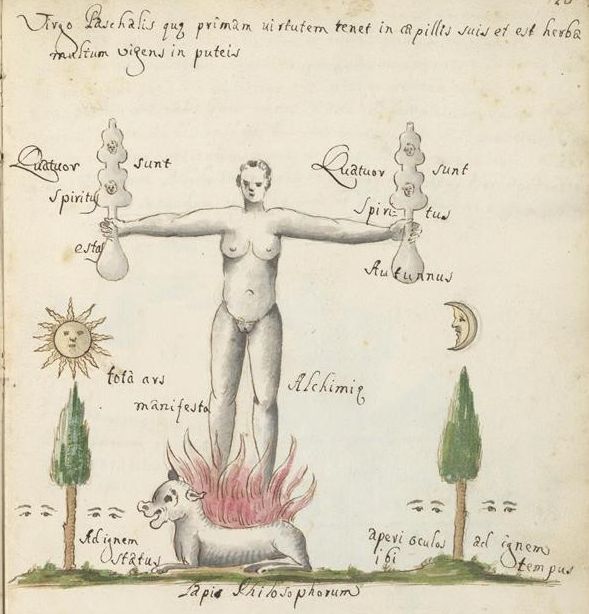 Virgo Paschalis quę primam virtutem tenet in capillis suis et est herba
multum vigens in puteis
Quatuor sunt
spiritus
estas
Quatuor sunt
spiritus
Autunnus
tota ars
manifesta
Alchimię
Ad ignem
status
aperi oculos ad ignem
ibi tempus
Lapis Philosophorum